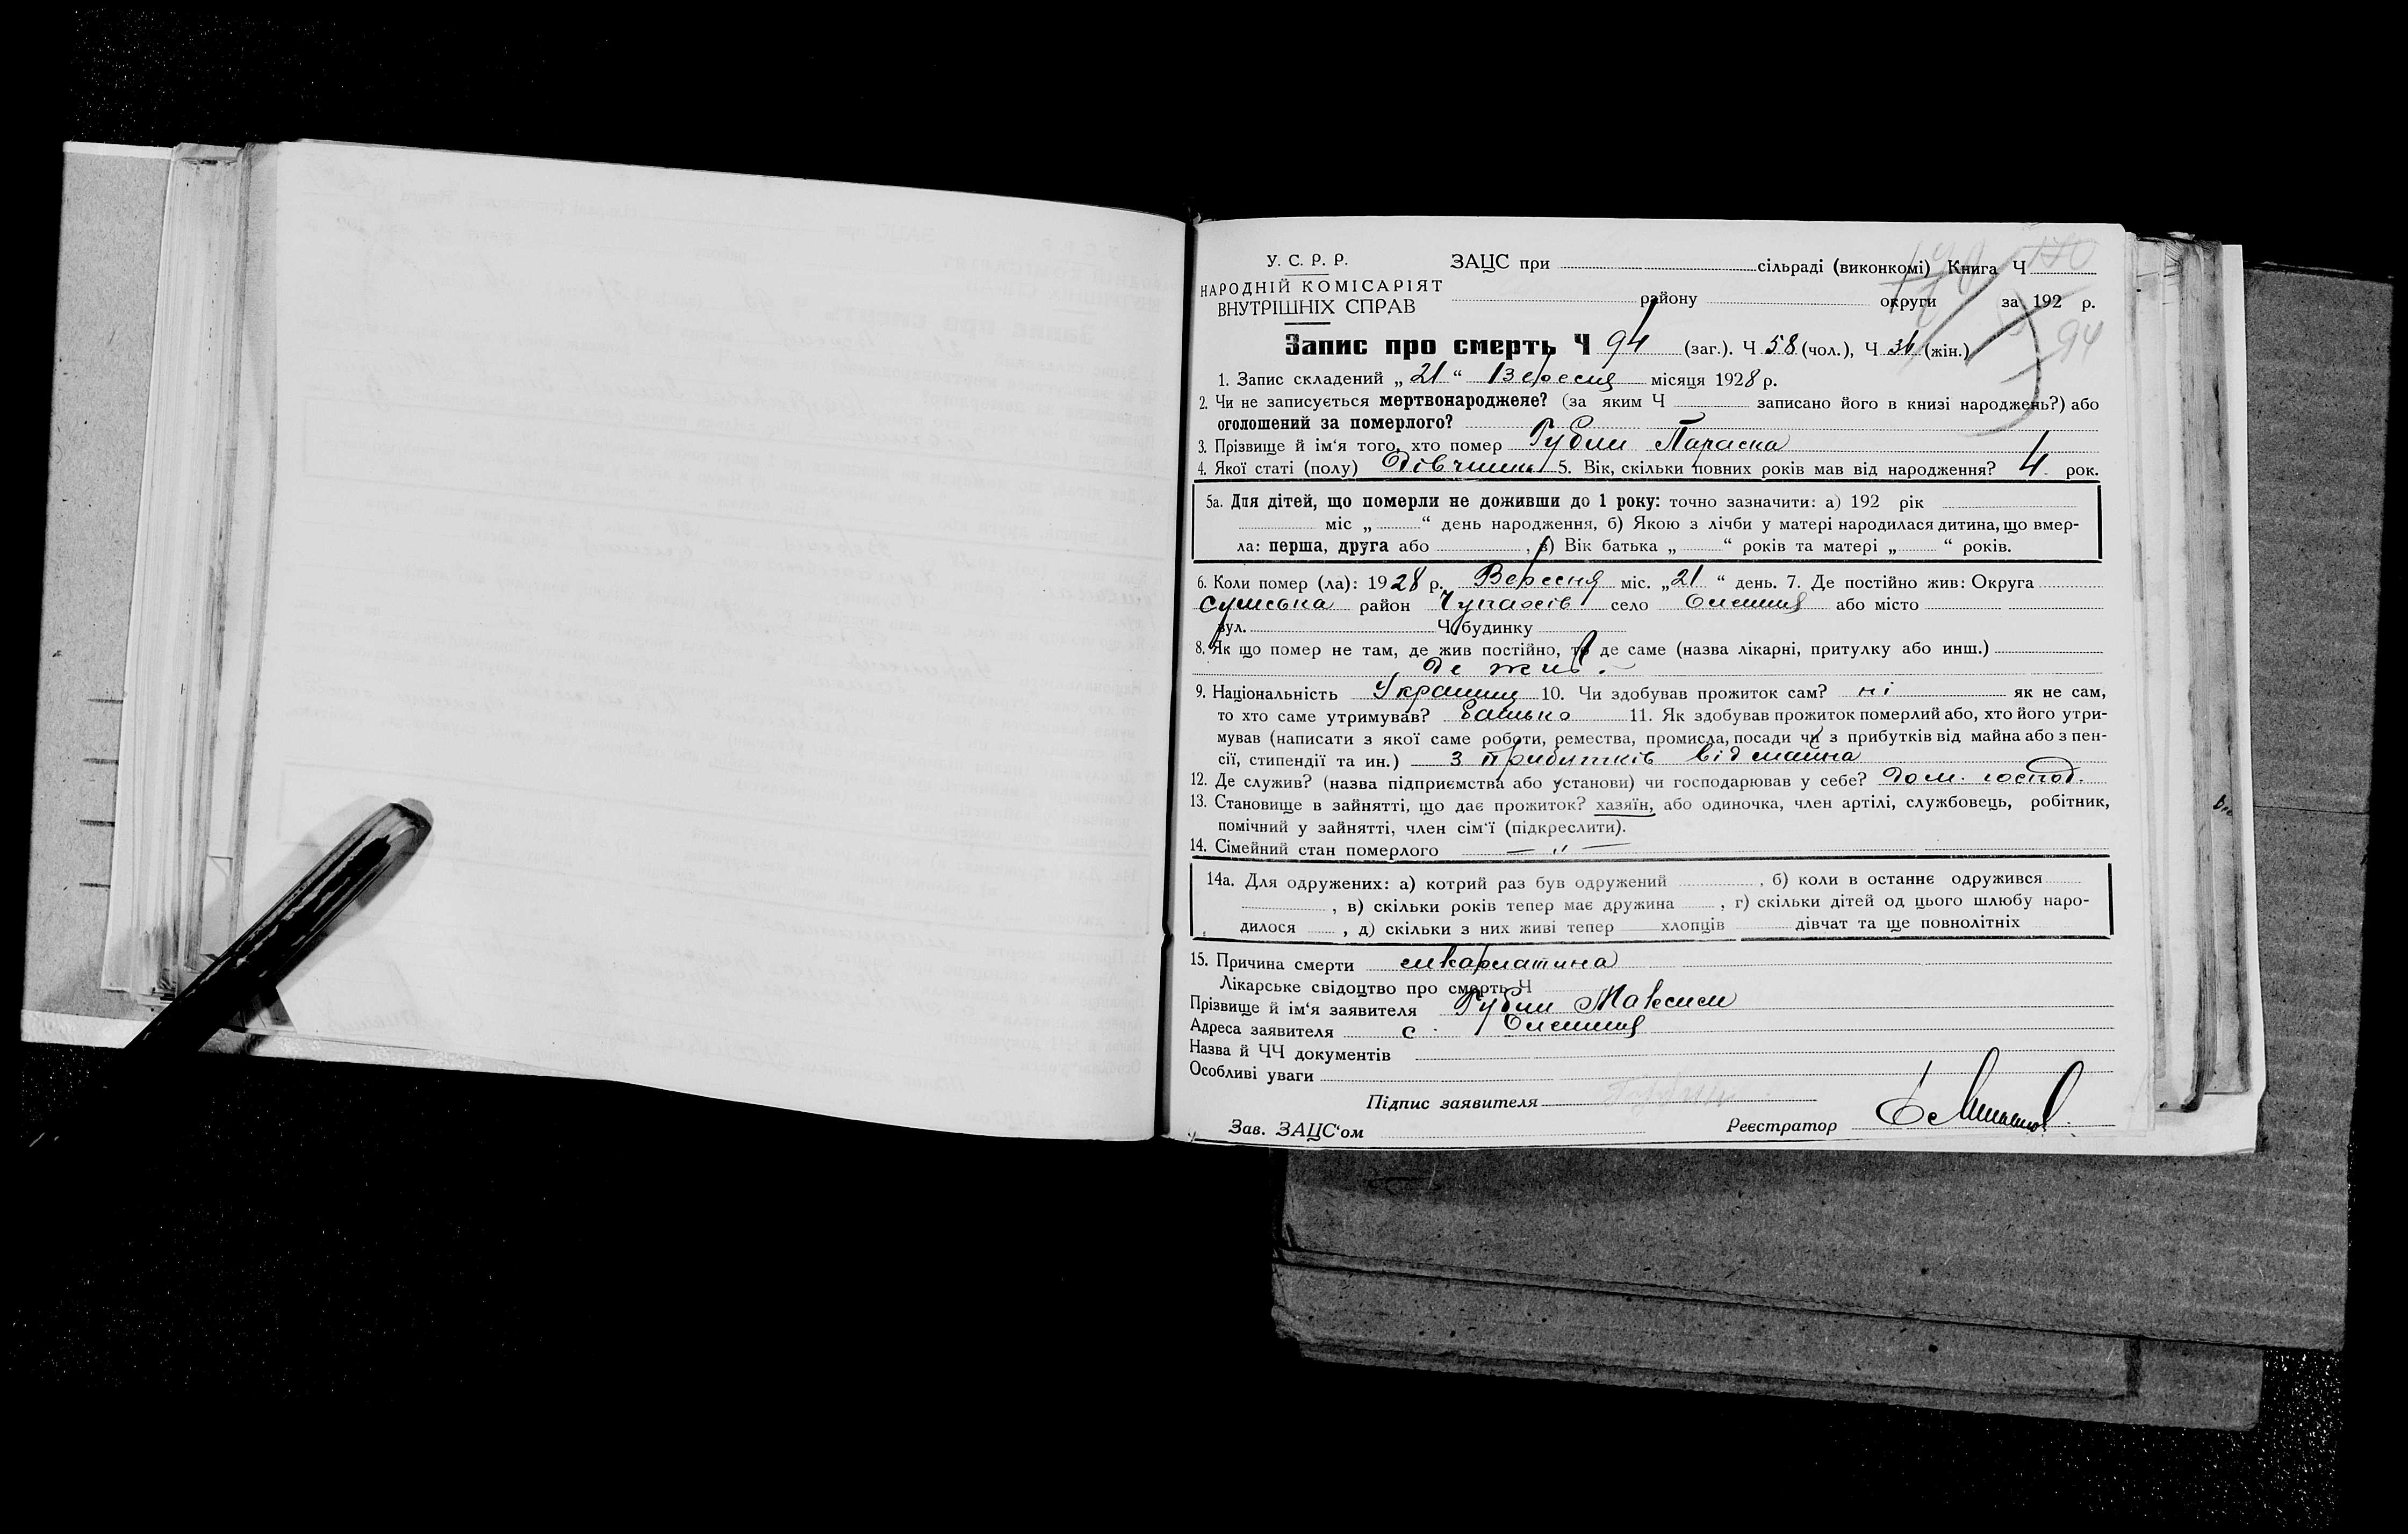 У. С. Р. Р.
НАРОДНІЙ КОМІСАРІЯТ
ВНУТРІШНІХ СПРАВ
ЗАЦС при сільраді (виконкомі) Книга Ч
району округи за 192 р.
94
Запис про смерть Ч 94 (заг.). Ч 58 (чол.), Ч 36 (жін.)
1. Запис складений „ 21 “ Вересня місяця 1928 р.
2. Чи не записується мертвонароджене? (за яким Ч записано його в книзі народжень?) або
оголошений за померлого?
3. Прізвище й ім‘я того, хто помер Губии Параска
4. Якої статі (полу) Дівчина 5. Вік, скільки повних років мав від народження? 4 рок.
5а. Для дітей, що померли не доживши до 1 року: точно зазначити: а) 192 рік
міс „ “ день народження, б) Якою з лічби у матері народилася дитина, що вмер-
ла: перша, друга або , в) Вік батька „ “ років та матері „ “ років.
6. Коли помер (ла): 1928 р. Вересня міс. „21 “ день. 7. Де постійно жив: Округа
Сумська район село або місто
вул. Ч. будинку
8. Як що помер не там, де жив постійно, то де саме (назва лікарні, притулку або инш.)
де жив.
9. Національність 10. Чи здобував прожиток сам? ні як не сам,
то хто саме утримував? батько 11. Як здобував прожиток померлий або, хто його утри-
мував (написати з якої саме роботи, ремества, промисла, посади чи з прибутків від майна або з пен-
сії, стипендії та ин.) з прибутків від майна
12. Де служив? (назва підприємства або установи) чи господарював у себе? дом. господ.
13. Становище в зайнятті, що дає прожиток? хазяїн, або одиночка, член артілі, службовець, робітник,
помічний у зайнятті, член сім‘ї (підкреслити).
14. Сімейний стан померлого — „ —
14а. Для одружених: а) котрий раз був одружений , б) коли в останнє одружився
, в) скільки років тепер має дружина , г) скільки дітей од цього шлюбу наро-
дилося , д) скільки з них живі тепер хлопців дівчат та ще повнолітніх
15. Причина смерти шкарлатина
Лікарське свідоцтво про смерть Ч
Прізвище й ім‘я заявителя Губии Максим
Адреса заявителя с.
Назва й ЧЧ документів
Особливі уваги
Підпис заявителя
Зав. ЗАЦС‘ом Реєстратор